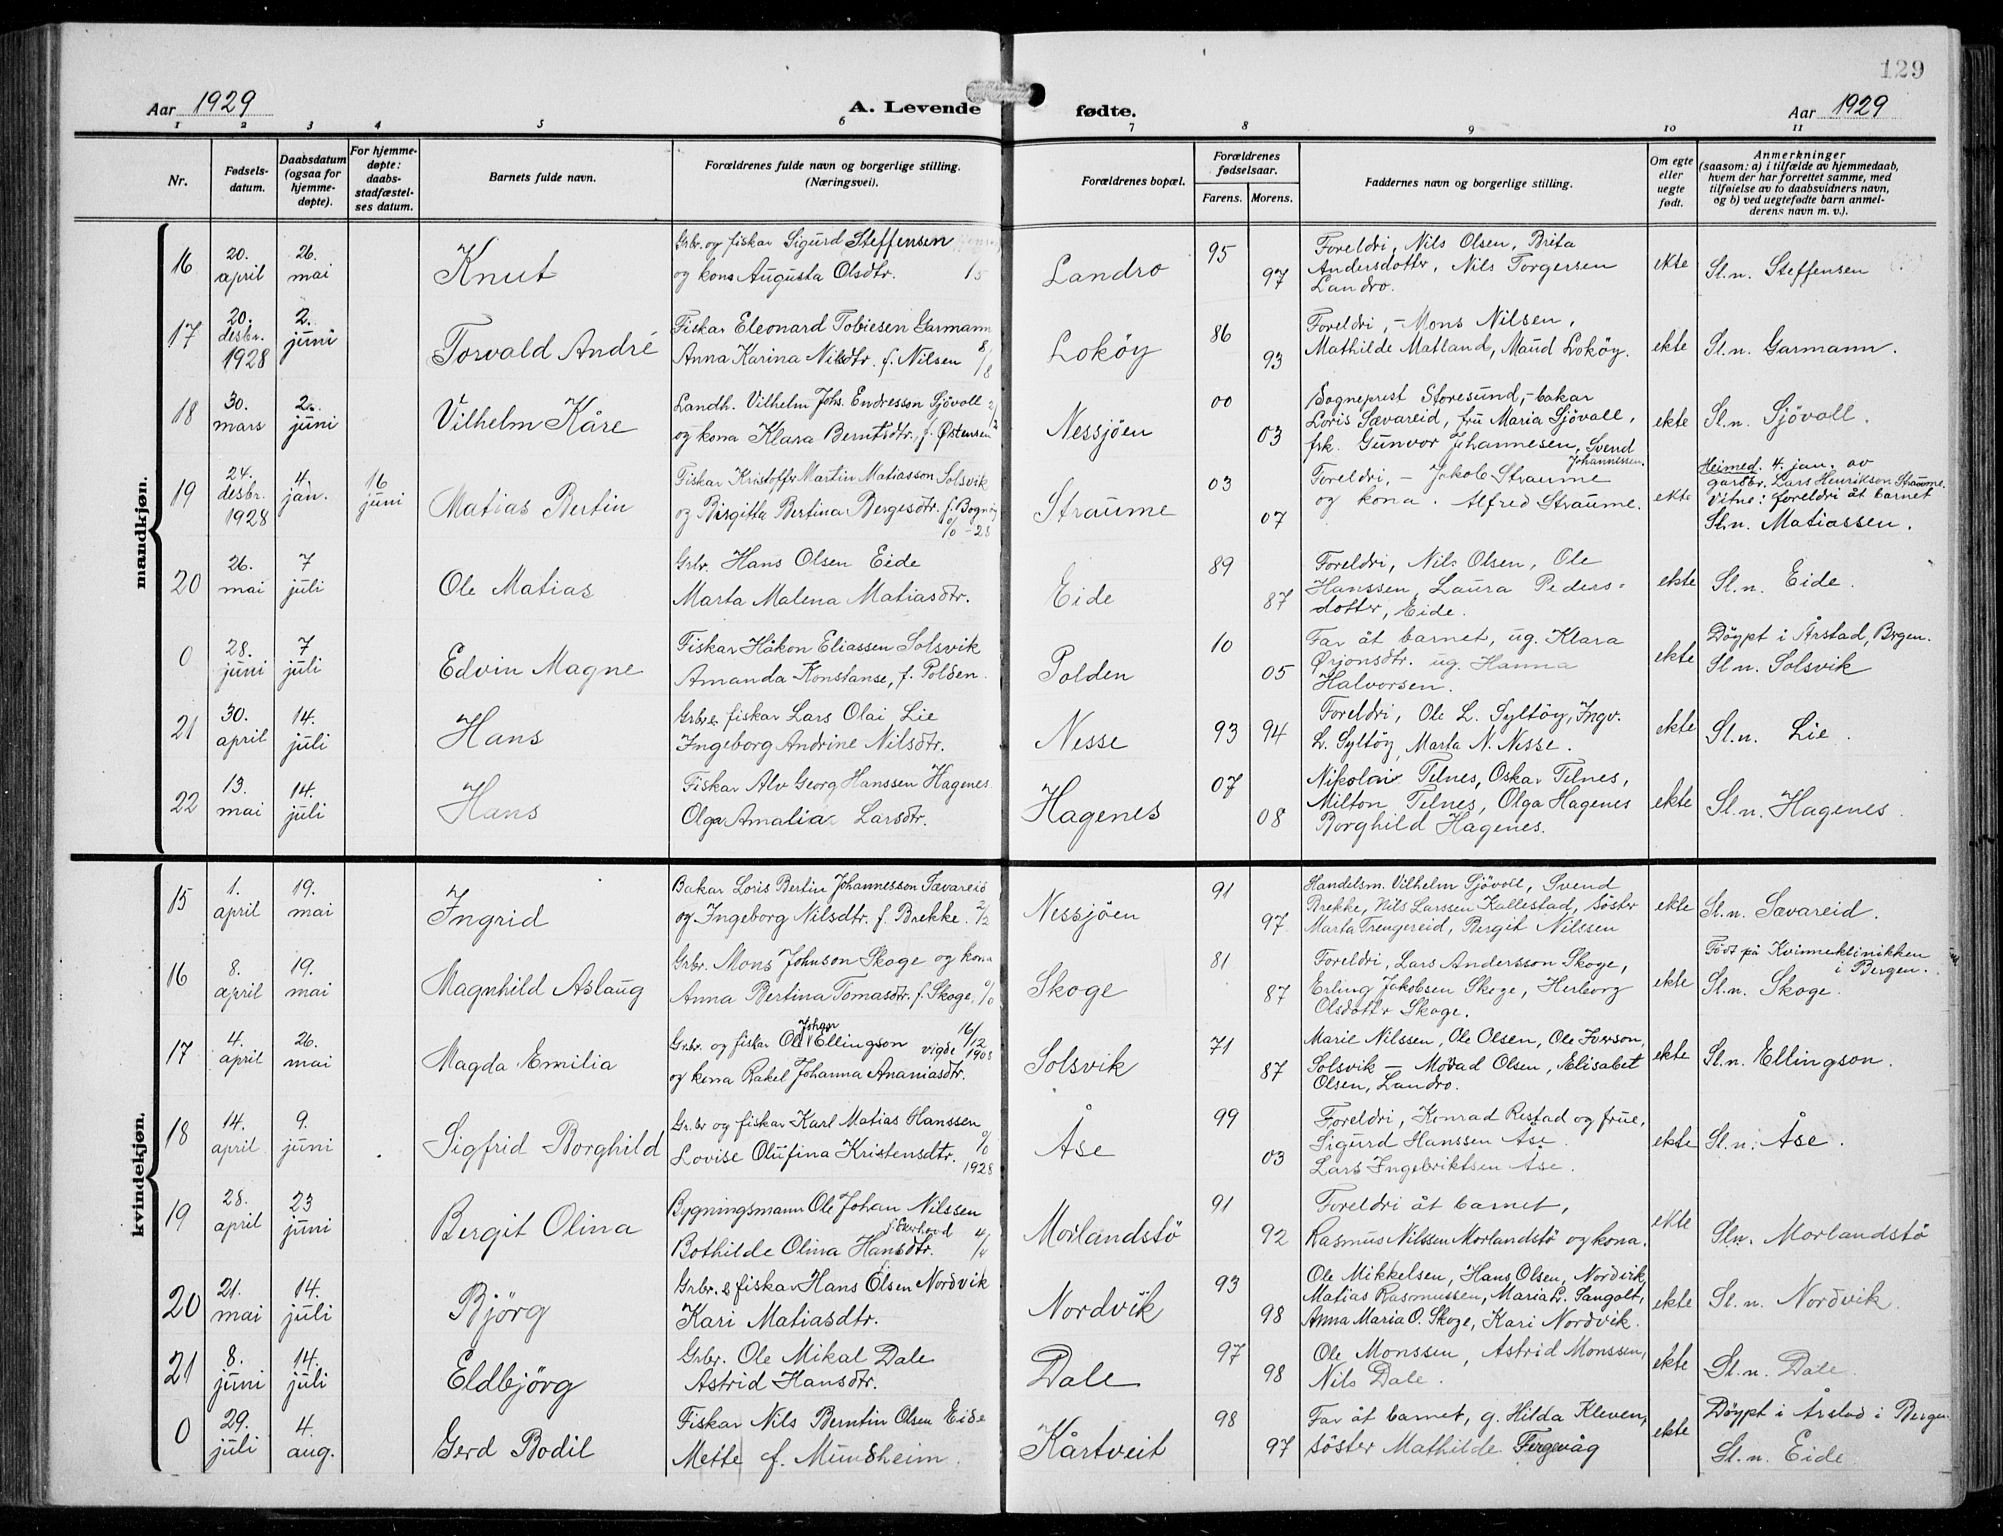 129
Aar 1929
A. Levende fødte.
Aar 1929
1 2 3 4 5 6 7 8 9 10 11
Nr.
Fødsels-
datum.
Daabsdatum
(ogsaa for
hjemme-
døpte).
For hjemme-
døpte:
daabs-
stadfæstel-
ses datum.
Barnets fulde navn.
Forældrenes fulde navn og borgerlige stilling.
(Næringsvei).
Forældrenes bopæl.
Forældrenes
fødselsaar.
Farens. Morens.
Faddernes navn og borgerlige stilling.
Om egte
eller
uegte
født.
Anmerkninger
(saasom: a) i tilfælde av hjemmedaab,
hvem der har forrettet samme, med
tilføielse av to daabsvidners navn,
og b) ved uegtefødte barn anmel-
derens navn m. v.).
mandkjøn.
16
20.
april
26.
mai
Knut
Grbr. og fiskar Sigurd Steffensen
og kona Augusta Olsdtr.
Landro
95
97
Foreldri, Nils Olsen, Brita
Andersdotter, Nils Torgersen
Landro.
ekte
Sl.n. Steffensen
17
20.
desbr.
1928
2.
juni
Torvald André
Fiskar Eleonard Tobiesen Garmann
Anna Karina Nilsdtr. f. Nilsen 8/8
Lokøy
86
93
Foreldri, - Mons Nilsen,
Mathilde Matland, Maud Lokøy.
ekte
Sl.n. Garmann.
18
30.
mars
2.
juni
Vilhelm Kåre
Landh. Vilhelm Johs. Endresson Sjövoll 2/2
og kona Klara Berntsdtr. f. Østensen
Nessjöen
00
03
Sogneprest Storesund, - bakar
Loris Savareid, fru Maria Sjövoll,
frk. Gunvor Johannesen, Svend
Johannessen.
ekte
Sl.n. Sjövoll.
19
24.
desbr.
1928
4.
jan.
16
juni
Matias Bertin
Fiskar Kristoffer Martin Matiasson Solsvik
og Birgitta Bertina Bergesdtr. f. Bognøy
0/0 - 28
Straume
03
07
Foreldri, - Jakob Straume
og kona. Alfred Straume.
ekte
Heimed. 4. jan. av
gardbr. Lars Henrikson Straume.
Vitne: foreldri åt barnet
Sl.n. Matiassen.
20
26.
mai
7
juli
Ole Matias
Grbr. Hans Olsen Eide
Marta Malena Matiasdtr.
Eide
89
87
Foreldri, Nils Olsen, Ole
Hanssen, Laura Peders-
dotter, Eide.
ekte
Sl.n. Eide.
0
28.
juni
7
juli
Edvin Magne
Fiskar Håkon Eliassen Solsvik
Amanda Konstanse, f. Polden.
Polden
10
05
Far åt barnet, ug. Klara
Ørjonsdtr. ug. Hanna
Halvorsen.
ekte
Döypt i Årstad, Bergen.
Sl.n. Solsvik
21
30.
april
14.
juli
Hans
Grbr & fiskar Lars Olai Lie
Ingeborg Andrine Nilsdtr.
Nesse
93 94
Foreldri, Ole L. Syltöy, Ingv.
L. Syltöy, Marta N. Nesse.
ekte
Sl.n. Lie.
22
13.
mai
14.
juli
Hans
Fiskar Alv Georg Hanssen Hagenes
Olga Amalia Larsdtr.
Hagenes
07
08
Nikolai Telnes, Oskar Telnes,
Milton Telnes, Olga Hagenes
Borghild Hagenes.
ekte
Sl.n. Hagenes.
kvindekjøn.
15
1.
april
19.
mai
Ingrid
Bakar Loris Bertin Johannesson Savareid
og Ingeborg Nilsdtr. f. Brekke. 2/2
Nessjöen
91
97
Handelsm. Vilhelm Sjövoll, Svend
Brekke, Nils Larssen Kallestad, söster
Marta Trengereid, Bergit Nilssen
ekte
Sl.n. Savareid.
16
8.
april
19.
mai
Magnhild Aslaug
Grbr. Mons Johnson Skoge og kona
Anna Bertina Tomasdtr. f. Skoge. 0/0
Skoge
81
87
Foreldri, Lars Andersson Skoge,
Erling Jakobsen Skoge, Herborg
Olsdottr Skoge.
ekte
Födt på Kvinneklinikken
i Bergen.
Sl.n. Skoge.
17
4.
april
26.
mai
Magda Emilia
Grbr. og fiskar Ole Johan Ellingson vigde 16/12 1908
og kona Rakel Johanna Ananiasdtr.
Solsvik
71
87
Marie Nilssen, Ole Olsen, Ole Iverson,
Solsvik - Movad Olsen, Elisabet
Olsen, Landro.
ekte
Sl.n. Ellingson.
18
14.
april
9.
juni
Sigfrid Borghild
Grbr og fiskar Karl Matias Hanssen
Lovise Olufina Kristensdtr. 0/0
1928
Åse
99
03
Foreldri, Konrad Restad og frue,
Sigurd Hanssen Åse.
Lars Ingebriktsen Åse.
ekte
Sl.n. Åse.
19
28.
april
23
juni
Bergit Olina
Bygningsmann Ole Johan Nilssen
Bothilde Olina Hansdtr. 4/4
Morlandstö
91
92
Foreldri åt barnet,
Rasmus Nilssen Morlandstö og kona.
ekte
Sl.n. Morlandstö
20
21.
mai
14.
juli
Björg
Grbr. & fiskar Hans Olsen Nordvik
Kari Matiasdtr.
Nordvik
93
98
Ole Mikkelsen, Hans Olsen, Nordvik,
Matias Rasmussen, Maria L. Sangolt,
Anna Maria O. Skoge, Kari Nordvik.
ekte
Sl.n. Nordvik.
21
8.
juni
14.
juli
Eldbjörg
Grbr. Ole Mikal Dale
Astrid Hansdtr.
Dale
97
98
Ole Monssen, Astrid Monssen,
Nils Dale.
ekte
Sl.n. Dale.
0
29.
juli
4.
aug.
Gerd Bodil
Fiskar Nils Berntin Olsen Eide
Mette f. Mundheim.
Kårtveit
98
97
Far åt barnet, g. Hilda Kleven,
söster Mathilde Fergevåg
ekte
Döypt i Årstad i Bergen
Sl.n. Eide